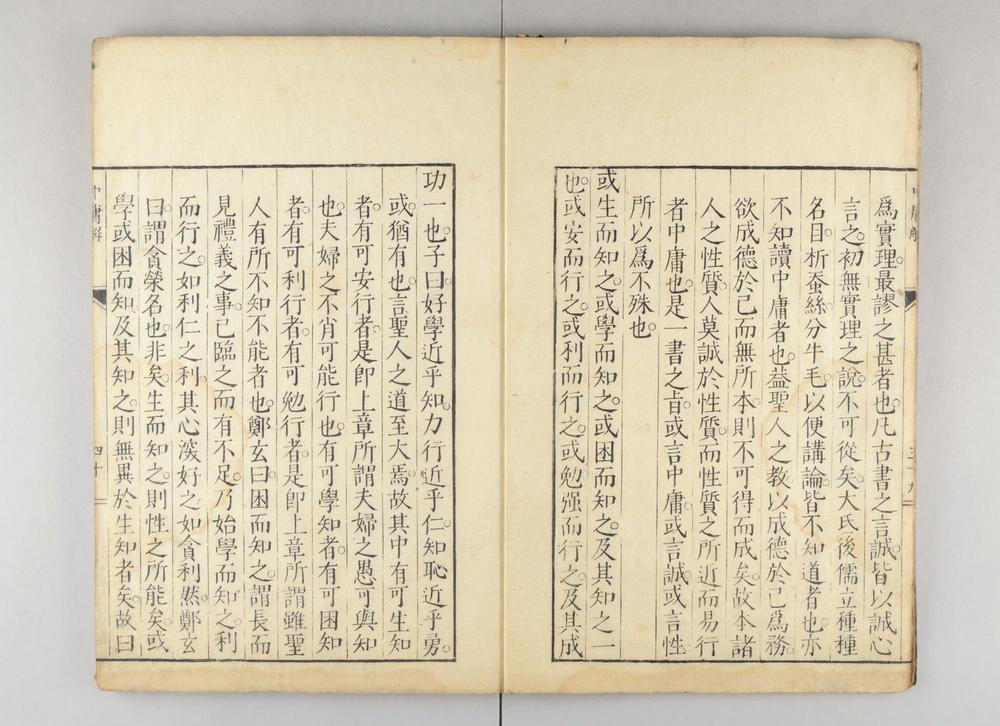 爲實理。最謬之甚者也。凡古書之言誠。皆以誠心
言之。初無實理之說。不可從矣。大氐後儒立種種
名目。析蚕絲。分牛毛。以便講論。皆不知道者也。亦
不知讀中庸者也。益聖人之教。以成德於己爲務。
欲成德於己而無所本。則不可得而成矣。故本諸
人之性質。人莫誠於性質。而性質之所近而易行
者中庸也。是一書之旨。或言中庸。或言誠。或言性。
所以爲不殊也。
或生而知之。或學而知之。或困而知之。及其知之一
也。或安而行之。或利而行之。或勉强而行之。及其成
功一也。子曰。好學近乎知。力行近乎仁。知恥近乎勇。
或。猶有也。言聖人之道至大焉。故其中有可生知
者。有可安行者。是卽上章所謂夫婦之愚可與知
也。夫婦之不肖可能行也。有可學知者。有可困知
者。有可利行者。有可勉行者。是卽上章所謂雖聖
人有所不知不能者也。鄭玄曰。困而知之。謂長而
見禮義之事。己臨之而有不足。乃始學而知之。利
而行之。如利仁之利。其心深好之如貪利然。鄭玄
曰。謂貪榮名也。非矣。生而知之。則性之所能矣。或
學或困而知。及其知之。則無異於生知者矣。故曰
中庸解
四十